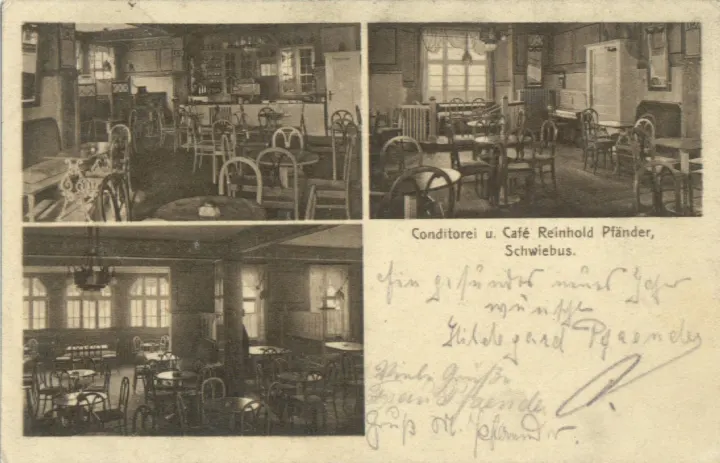 Conditorei u. Café Reinhold Pfänder,
Schwiebus.
Ein gesundes neues Jahr
wünscht
Hildegard Pfaender
Viele Grüße
Pfaender
Gruß M. Pfaender.